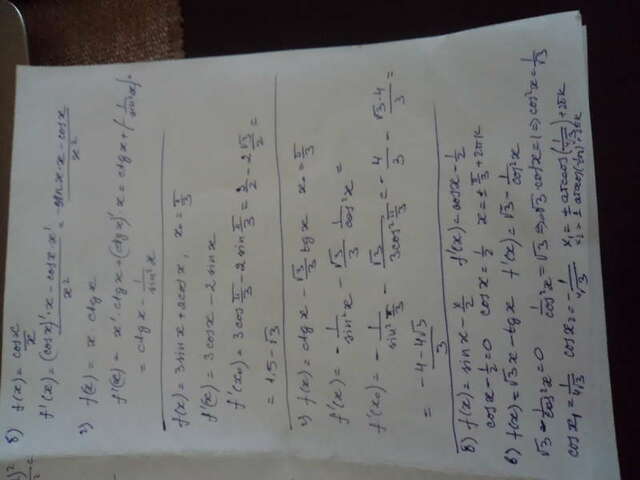 б) f(x) = cosx/x
f'(x) = ((cosx)'·x - cosx·x')/x² = (-sinx·x - cosx)/x²
г) f(x) = x ctgx
f'(x) = x'·ctgx + (ctgx)'x = ctgx + (-1/sin²x)x =
= ctgx - 1/sin²x
f(x) = 3sinx + 2cosx, x₀ = π/3
f'(x) = 3cosx - 2sinx
f'(x₀) = 3cos π/3 - 2sin π/3 = 3/2 - 2√3/2 =
= 1,5 - √3
г) f(x) = ctgx - √3/3 tgx x₀ = π/3
f'(x) = -1/sin²x - √3/3 1/cos²x =
f'(x₀) = -1/sin² π/3 - √3/3cos² π/3 = -4/3 - √3·4/3 =
= (-4-4√3)/3
в) f(x) = sinx - x/2 f'(x) = cosx - 1/2
cosx - 1/2 = 0 cosx = 1/2 x = ± π/3 + 2πk
в) f(x) = √3x - tgx f'(x) = √3 - 1/cos²x
√3 - 1/cos²x = 0 1/cos²x = √3 ⇒ √3 cos²x = 1 ⇒ cos²x = 1/√3
cosx₁ = 1/⁴√3 cosx₂ = -1/⁴√3 x₁ = ± arccos(1/⁴√3) + 2πk